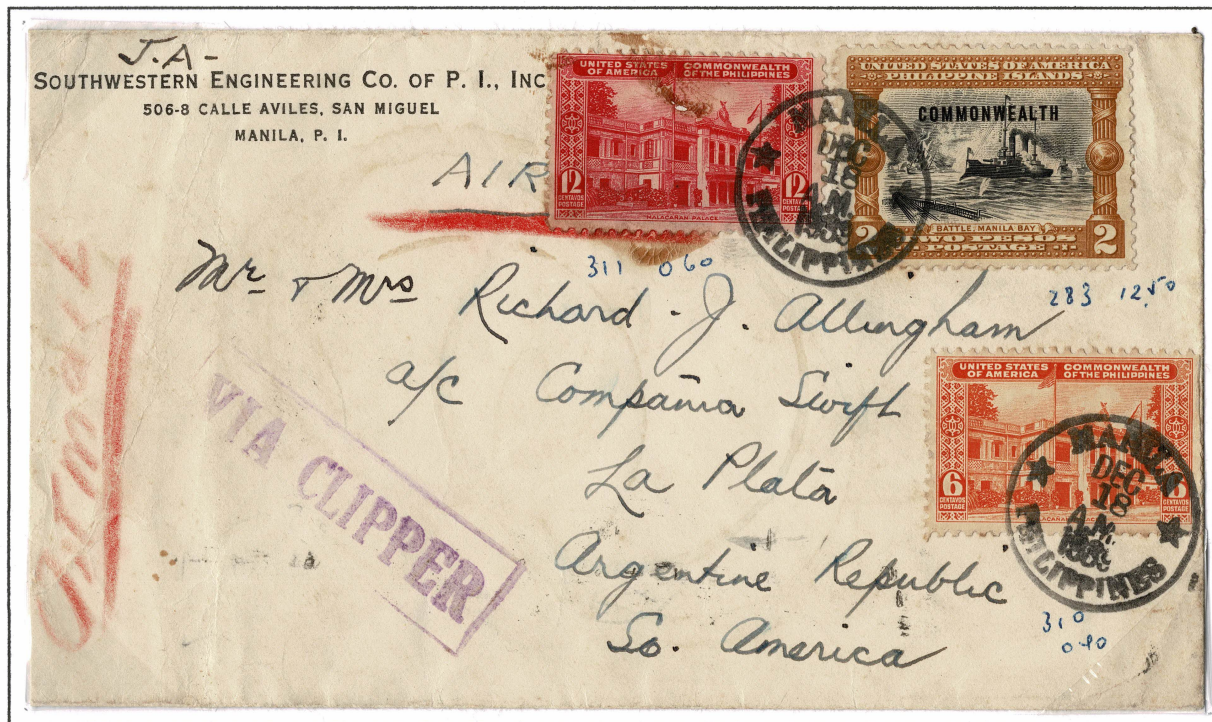 J.A-
SOUTHWESTERN ENGINEERING CO. OF P. I., INC
506-8 CALLE AVILES, SAN MIGUEL
MANILA, P. I.
AIR
UNITED STATES OF AMERICA COMMONWEALTH OF THE PHILIPPINES
12 CENTAVOS POSTAGE 12 CENTAVOS POSTAGE
MALACAÑAN PALACE
UNITED STATES OF AMERICA
PHILIPPINE ISLANDS
COMMONWEALTH
BATTLE, MANILA BAY
2 TWO PESOS 2
POSTAGE
MANILA
DEC
18
A.M.
1939
PHILIPPINES
311 060
283 12.50
Mr & Mrs Richard . J. Allingham
a/c Compania Swift
La Plata
Argentine Republic
So. America
VIA CLIPPER
UNITED STATES OF AMERICA COMMONWEALTH OF THE PHILIPPINES
6 CENTAVOS POSTAGE 6 CENTAVOS POSTAGE
MALACAÑAN PALACE
MANILA
DEC
18
A.M.
1939
PHILIPPINES
310